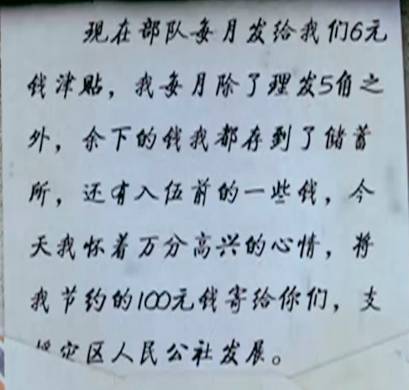 现在部队每月发给我们6元
钱津贴，我每月除了理发5角之
外，余下的钱我都存到了储蓄
所，还有入伍前的一些钱，今
天我怀着万分高兴的心情，将
我节约的100元钱寄给你们，支
援灾区人民公社发展。